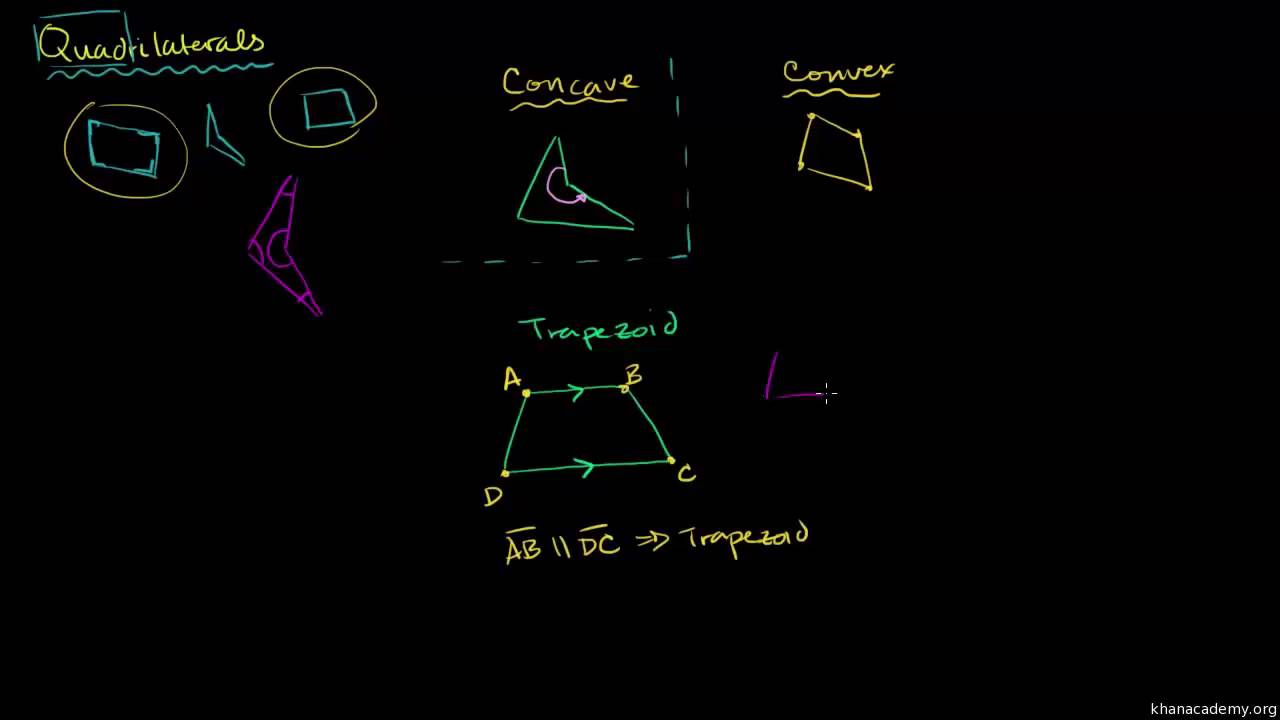 Quadrilaterals
Concave
Convex
Trapezoid
A
B
D
C
A̅B̅ || D̅C̅ ⇒ Trapezoid
khanacademy.org